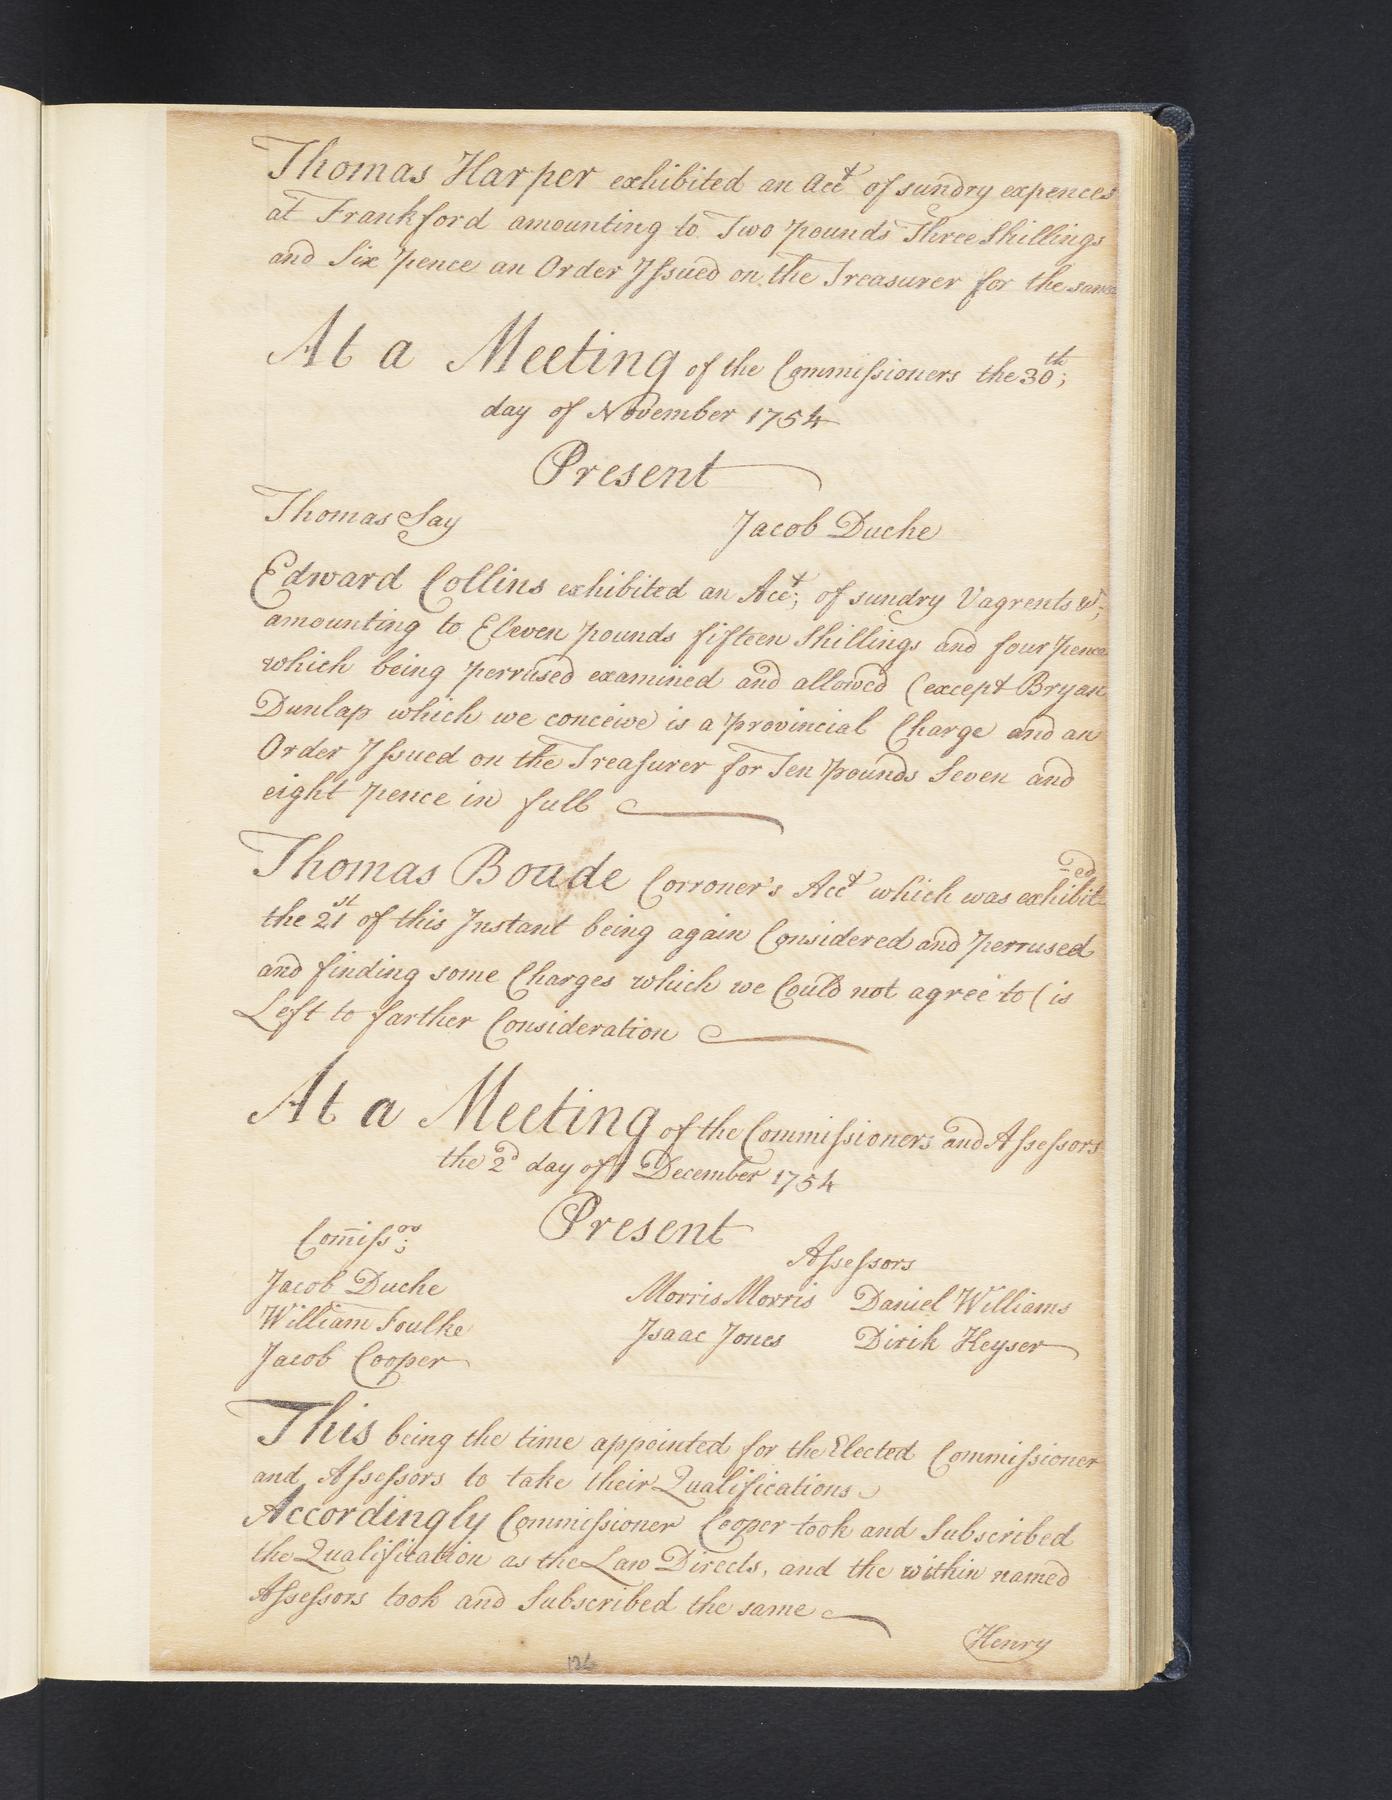 Thomas Harper exhibited an Acct of sundry expences
at Frankford amounting to Two pounds Three Shillings
and Six pence an Order Issued on the Treasurer for the same
At a Meeting of the Commissioners the 30th;
day of November 1754
Present
Thomas Say Jacob Duche
Edward Collins exhibited an Acct; of sundry Vagrents &c;
amounting to Eleven pounds fifteen Shillings and four pence
which being perrused examined and allowed (except Bryan
Dunlap which we conceive is a provincial Charge and an
Order Issued on the Treasurer for Ten pounds Seven and
eight pence in full
Thomas Boude Corroner's Acct which was exhibit=ed
the 21st of this Instant being again Considered and perrused
and finding some Charges which we Could not agree to (is
Left to farther Consideration
At a Meeting of the Commissioners and Assessors
the 2d day of December 1754
Present
Comissrs; Assessors
Jacob Duche Morris Morris Daniel Williams
William Foulke Isaac Jones Dirik Keyser
Jacob Cooper
This being the time appointed for the Elected Commissioner
and Assessors to take their Qualifications
Accordingly Commissioner Cooper took and Subscribed
the Qualification as the Law Directs, and the within named
Assessors took and Subscribed the same
Henry
126